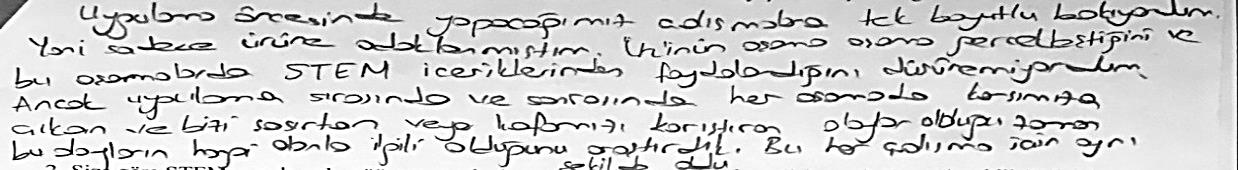 Uygulama öncesinde yapacağımız çalışmalara tek boyutlu bakıyordum.
Yani sadece ürüne odaklanmıştım. Ürünün aşama aşama gerçekleştiğini ve
bu aşamalarda STEM içeriklerinden faydalandığını düşünemiyordum.
Ancak uygulama sırasında ve sonrasında her aşamada karşımıza
çıkan ve bizi şaşırtan veya kafamızı karıştıran olaylar olduğu zaman
bu olayların hangi alanla ilgili olduğunu araştırdık. Bu her çalışma için aynı
şekilde oldu